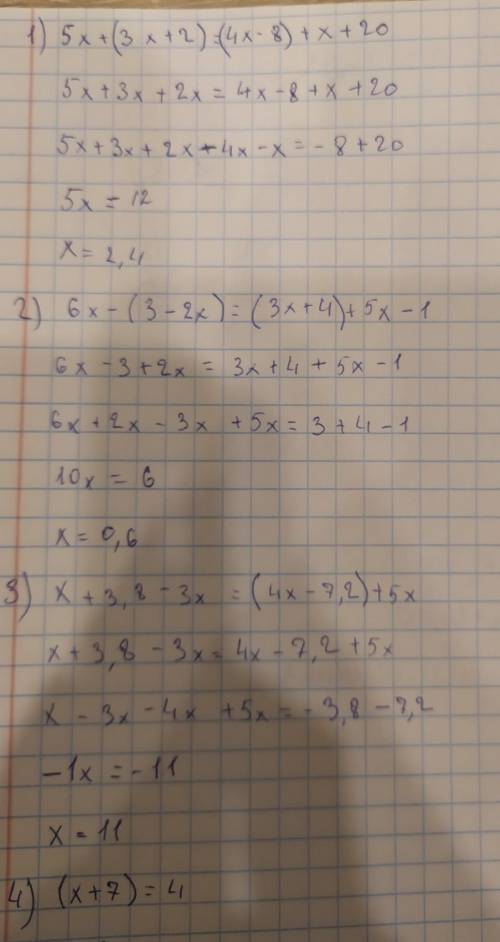 1) 5x+(3x+2)=(4x-8)+x+20
5x+3x+2x=4x-8+x+20
5x+3x+2x-4x-x=-8+20
5x=12
x=2,4
2) 6x-(3-2x)=(3x+4)+5x-1
6x-3+2x=3x+4+5x-1
6x+2x-3x+5x=3+4-1
10x=6
x=0,6
3) x+3,8-3x=(4x-7,2)+5x
x+3,8-3x=4x-7,2+5x
x-3x-4x+5x=-3,8-7,2
-1x=-11
x=11
4) (x+7)=4